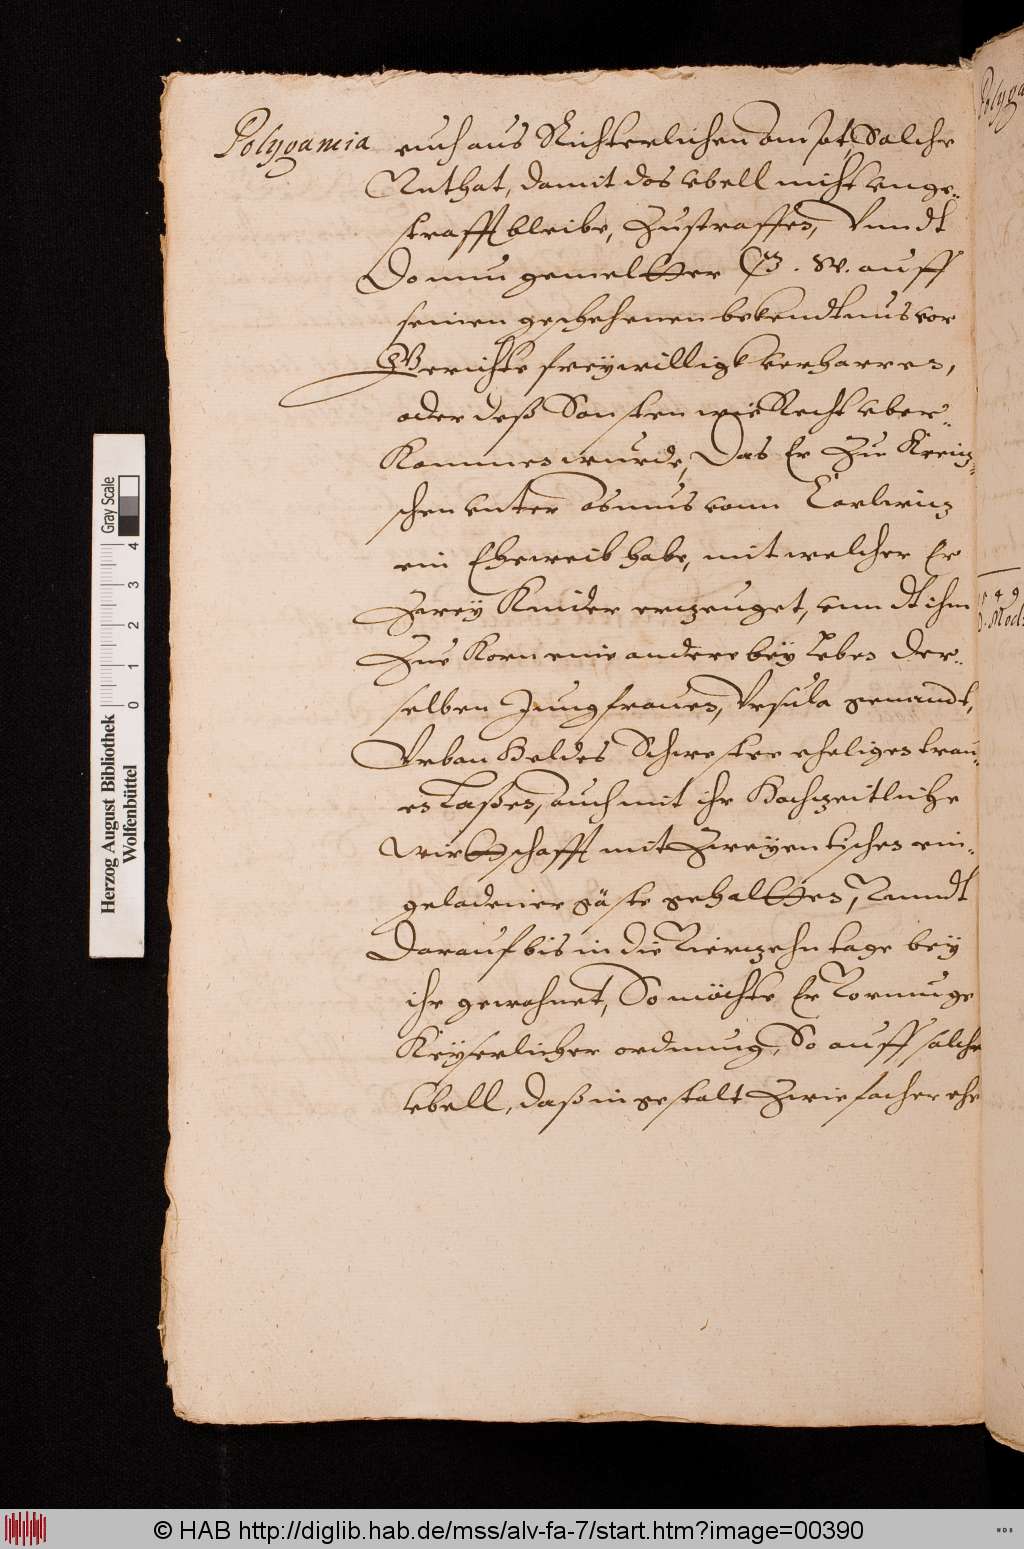 Polygamia
euch aus Richterlichen ampt, Solche
Unthat, damit das ubell nicht unge-
strafft bleibe, Zustraffen, Vnndt
Do nun gemeltter P. W. auff
seinen geschehenen bekendtnus vor
Gerichte freywilligk verharren,
oder deß Sonsten wie Recht uber-
Kommen wurde, Das Er Zu
schen unter Asmus vonn
ein Eheweib habe, mit welcher Er
Zwey Kinder erzeuget, unndt ihm
Zue Korn eine andere bey leben der-
selben Jungfrauen, Vrsula genandt,
Vrban Heldes Schwester eheligen trau-
en laßen, auch mit ihr Hochzeitliche
wirttschafft mit Zweyen tischen ein-
geladener gäste gehaltten, Vnndt
Darauf bis in die Vierzehn tage bey
ihr gewohnet, So möchte Er Vermuge
Keyserlicher ordnung, So auff solche
ubell, daß in gestalt Zwiefacher ehe
Herzog August Bibliothek
Wolfenbüttel
Gray Scale
0 1 2 3 4
© HAB http://diglib.hab.de/mss/alv-fa-7/start.htm?image=00390